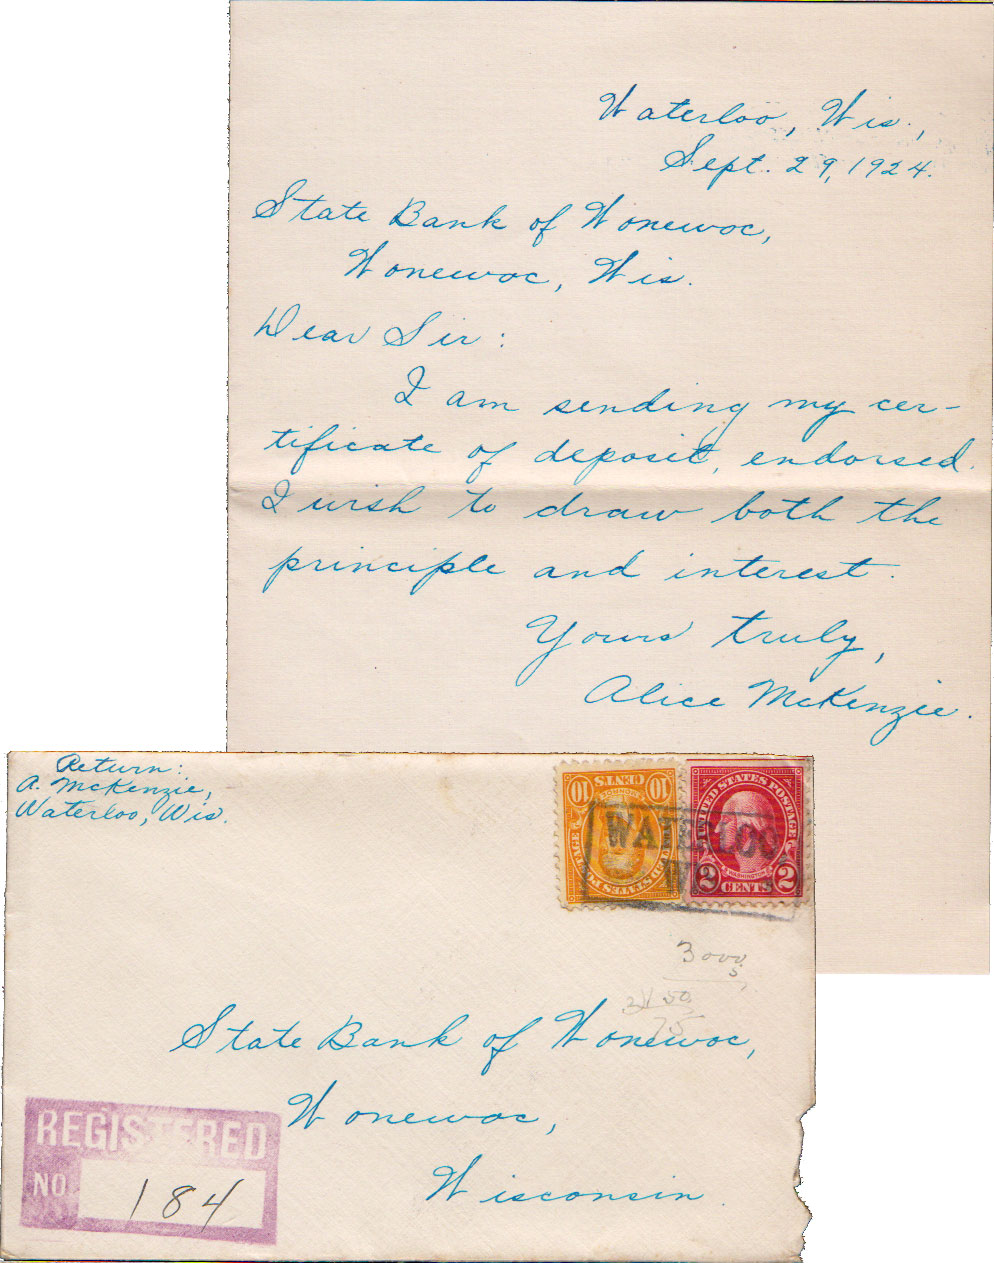 Waterloo, Wis.,
Sept. 29, 1924.
State Bank of Wonewoc,
Wonewoc, Wis.
Dear Sir:
I am sending my cer-
tificate of deposit, endorsed.
I wish to draw both the
principle and interest.
Yours truly,
Alice McKenzie.
Return:
A. McKenzie,
Waterloo, Wis.
10 CENTS 10
UNITED STATES POSTAGE
MONROE
UNITED STATES POSTAGE
WASHINGTON
2 CENTS 2
WATERLOO,
WIS
3000
5
2 150
75
State Bank of Wonewoc,
Wonewoc,
Wisconsin.
REGISTERED
NO. 184